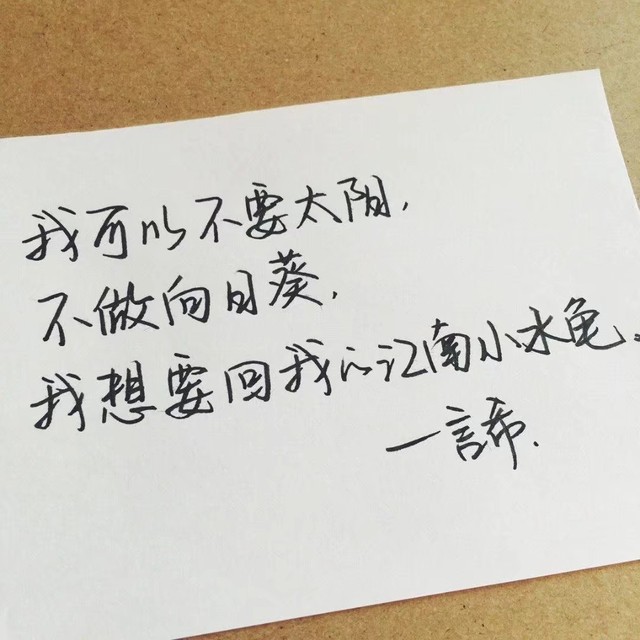 我可以不要太阳，
不做向日葵，
我想要回我的江南小水龟。